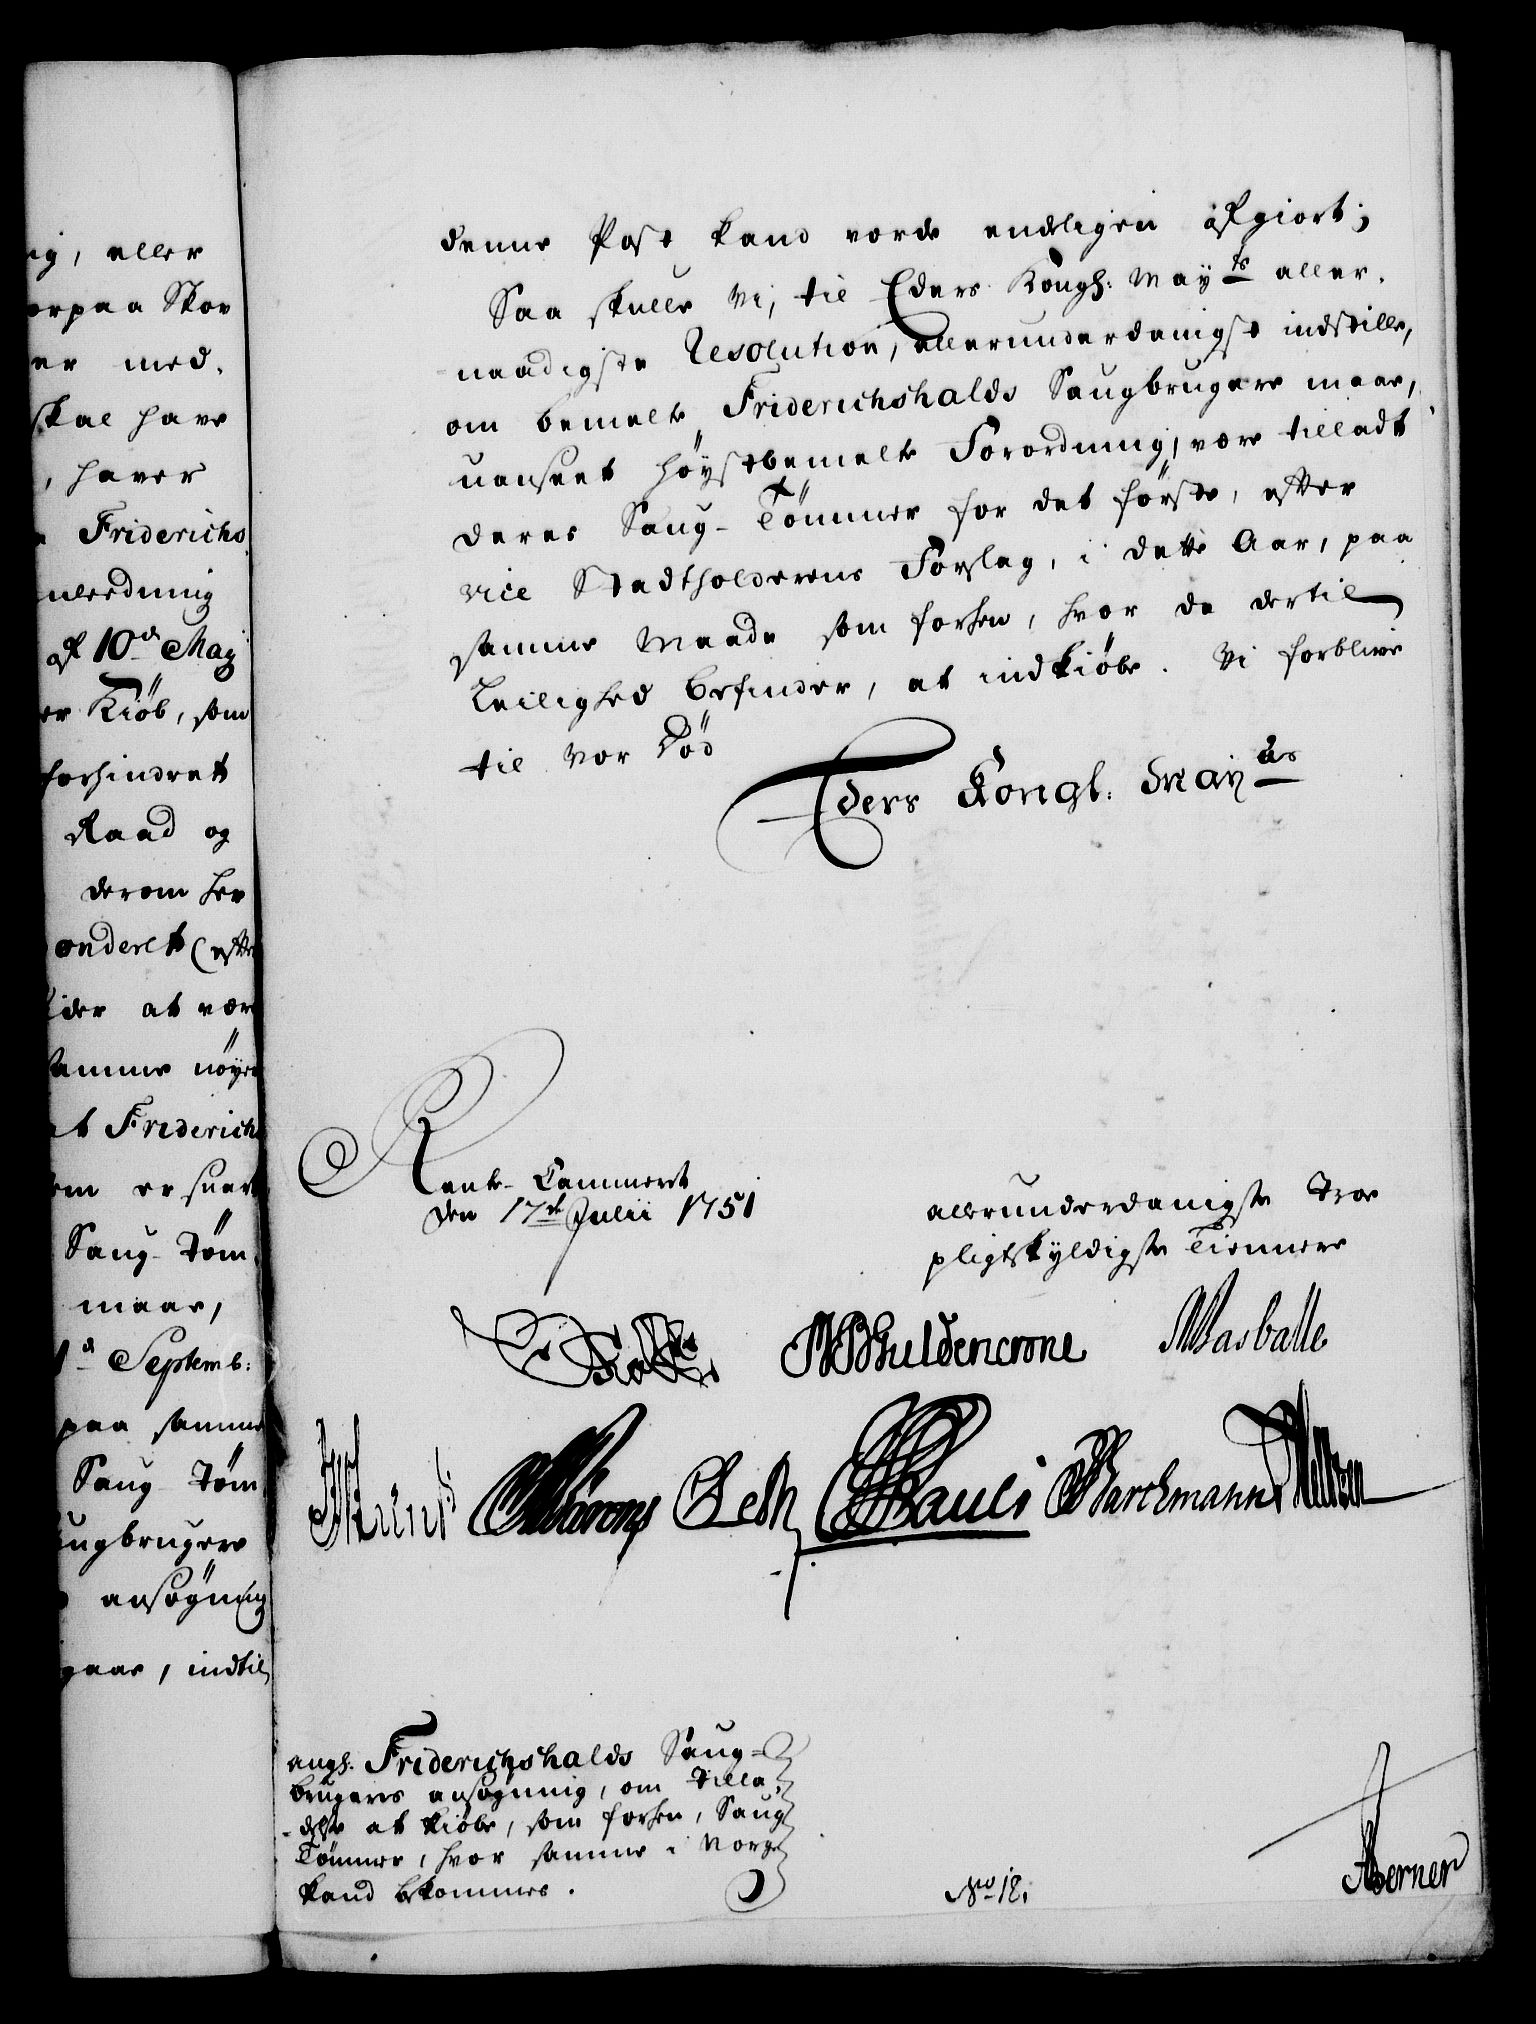 ig, eller
orpaa Skov
er med.
skal have
, haver
Friderichs
nleedning
af 10de May
er Kiöb, som
forhindret
Raad og
derom her
onderet (efter
ider at vær
samme nöye
at Friderich
em er svar
Saug-Töm.
maae,
1d Septemb:
paa samme
Saug Töm
ugbrugere
ansögning
gaae, indtil
denne Post kand vorde endeligen afgiort;
Saa skulle Vi, til Eders Kongl: Mayts aller.
naadigste Resolution, allerunderdanigst indstille,
om bemelte Friderichshalds Saugbrugere maae,
uanseet höystbemelte Forordning, være tilladt
deres Saug-Tömmer for det förste, efter
Vice Stadtholderens Forslag, i dette Aar, paa
samme Maade som forhen, hvor de dertil
Leilighed befinder, at indkiöbe. Vi forblive
til vor Död
Eders Kongl. Mayts
Rente-Cammeret
den 17de Julii 1751
allerunderdanigste Troe
pligtskyldigste Tiennere
Guldencrone Masballe
Leth Pauli Barchmann
angl. Friderichshalds Saug-
brugeres ansögning, om Tilla-
-delse at kiöbe, som forhen, Saug
Tömmer, hvor samme i Norge
kand bekommes.
No 12.
Berner